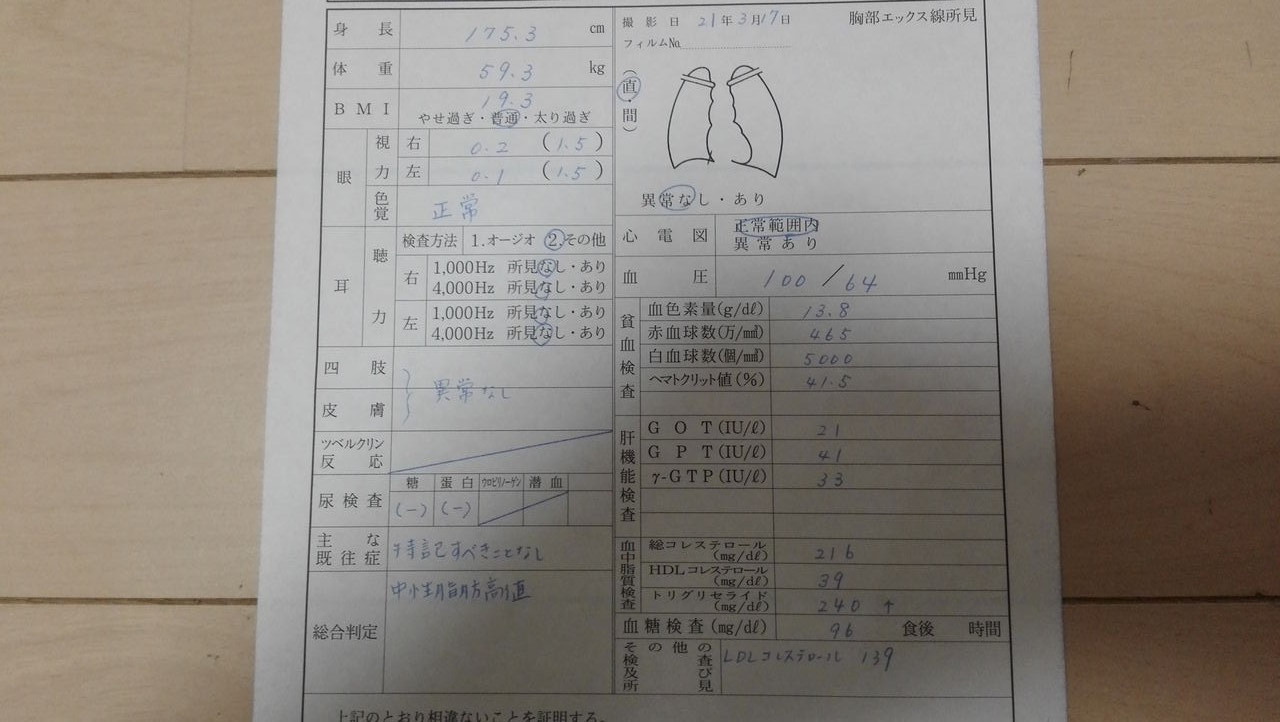 身長 175.3 cm
体重 59.3 kg
BMI 19.3
やせ過ぎ・普通・太り過ぎ
眼 視力 右 0.2 (1.5)
左 0.1 (1.5)
色覚 正常
耳 聴力 検査方法 1.オージオ 2.その他
右 1,000Hz 所見なし・あり
4,000Hz 所見なし・あり
左 1,000Hz 所見なし・あり
4,000Hz 所見なし・あり
四肢
皮膚
異常なし
ツベルクリン
反応
尿検査 糖 蛋白 ウロビリノーゲン 潜血
(-) (-)
主な
既往症
特記すべきことなし
総合判定 中性脂肪高値
撮影日 21年3月17日 胸部エックス線所見
フィルム№
(直・間)
異常なし・あり
心電図 正常範囲内
異常あり
血圧 100/64 mmHg
貧血検査 血色素量(g/dℓ) 13.8
赤血球数(万/m㎥) 465
白血球数(個/m㎥) 5000
ヘマトクリット値(%) 41.5
肝機能検査 GOT(IU/ℓ) 21
GPT(IU/ℓ) 41
γ-GTP(IU/ℓ) 33
血中脂質検査 総コレステロール
(mg/dℓ) 216
HDLコレステロール
(mg/dℓ) 39
トリグリセライド
(mg/dℓ) 240 ↑
血糖検査(mg/dℓ) 96 食後 時間
その他の検査及び所見 LDLコレステロール 139
上記のとおり相違ないことを証明する。